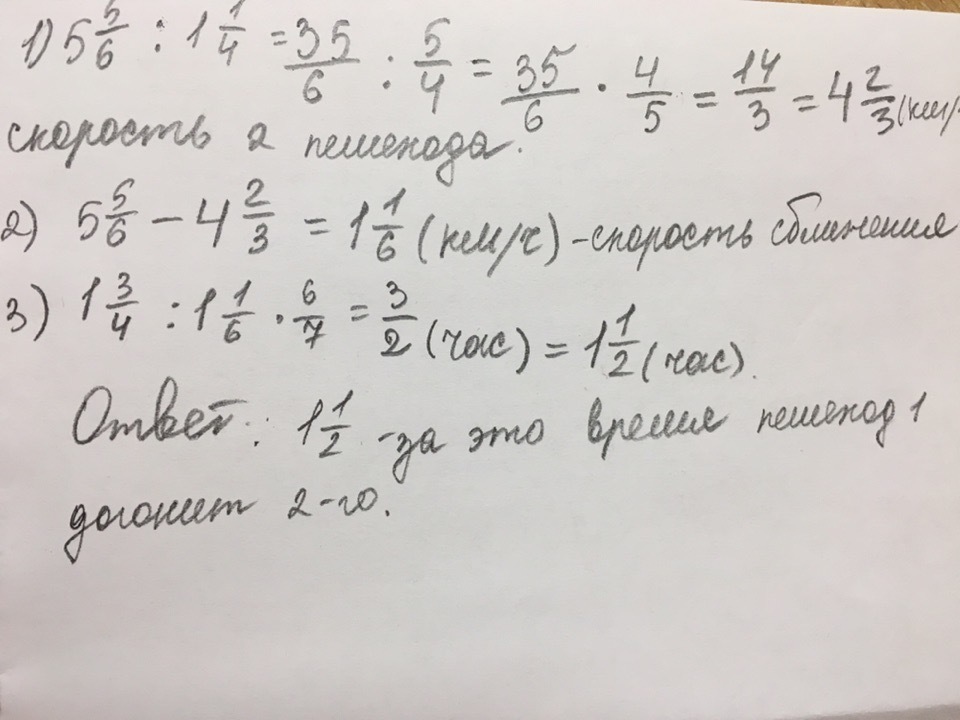 1) 5 5/6 : 1 1/4 = 35/6 : 5/4 = 35/6 · 4/5 = 14/3 = 4 2/3 (км/
скорость 2 пешехода.
2) 5 5/6 − 4 2/3 = 1 1/6 (км/ч) - скорость сближения
3) 1 3/4 : 1 1/6 · 6/7 = 3/2 (час) = 1 1/2 (час).
Ответ: 1 1/2 - за это время пешеход 1
догонит 2-го.